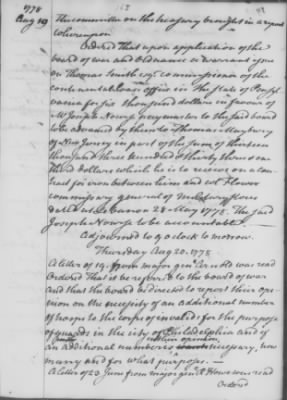 1778
Aug 19
The committee on the treasury brought in a report
Whereupon
Ordered That upon application of the
board of war and Ordnance a warrant issue
on Thomas Smith esqr commissioner of the
continental loan office in the State of Pensyl
vania for six thousand dollars in favour of
Mr Joseph Nourse paymaster to the said board
to be advanced by them to Thomas Mayberry
of New Jersey in part of the sum of thirteen
thousand three hundred & thirty three & one
third dollars which he is to receive on a con
tract for iron between him and col Flower
commissary general of military stores
dated at Lebanon 28 May 1778. The said
Joseph Nourse to be accountable.
Adjourned to 9 o clock to morrow.
Thursday Aug 20. 1778
A letter of 19. from major genl Arnold was read
Ordered That it be referred to the board of war
and that the board be directed to report their opi
nion on the necessity of an additional number
of troops to the corps of invalids for the purpose
of guards in the city of Philadelphia and if
in their opinion,
an additional number is necessary, how
many and for what purpose. —
A letter of 23 June from major gen R Howe was read
Ordered